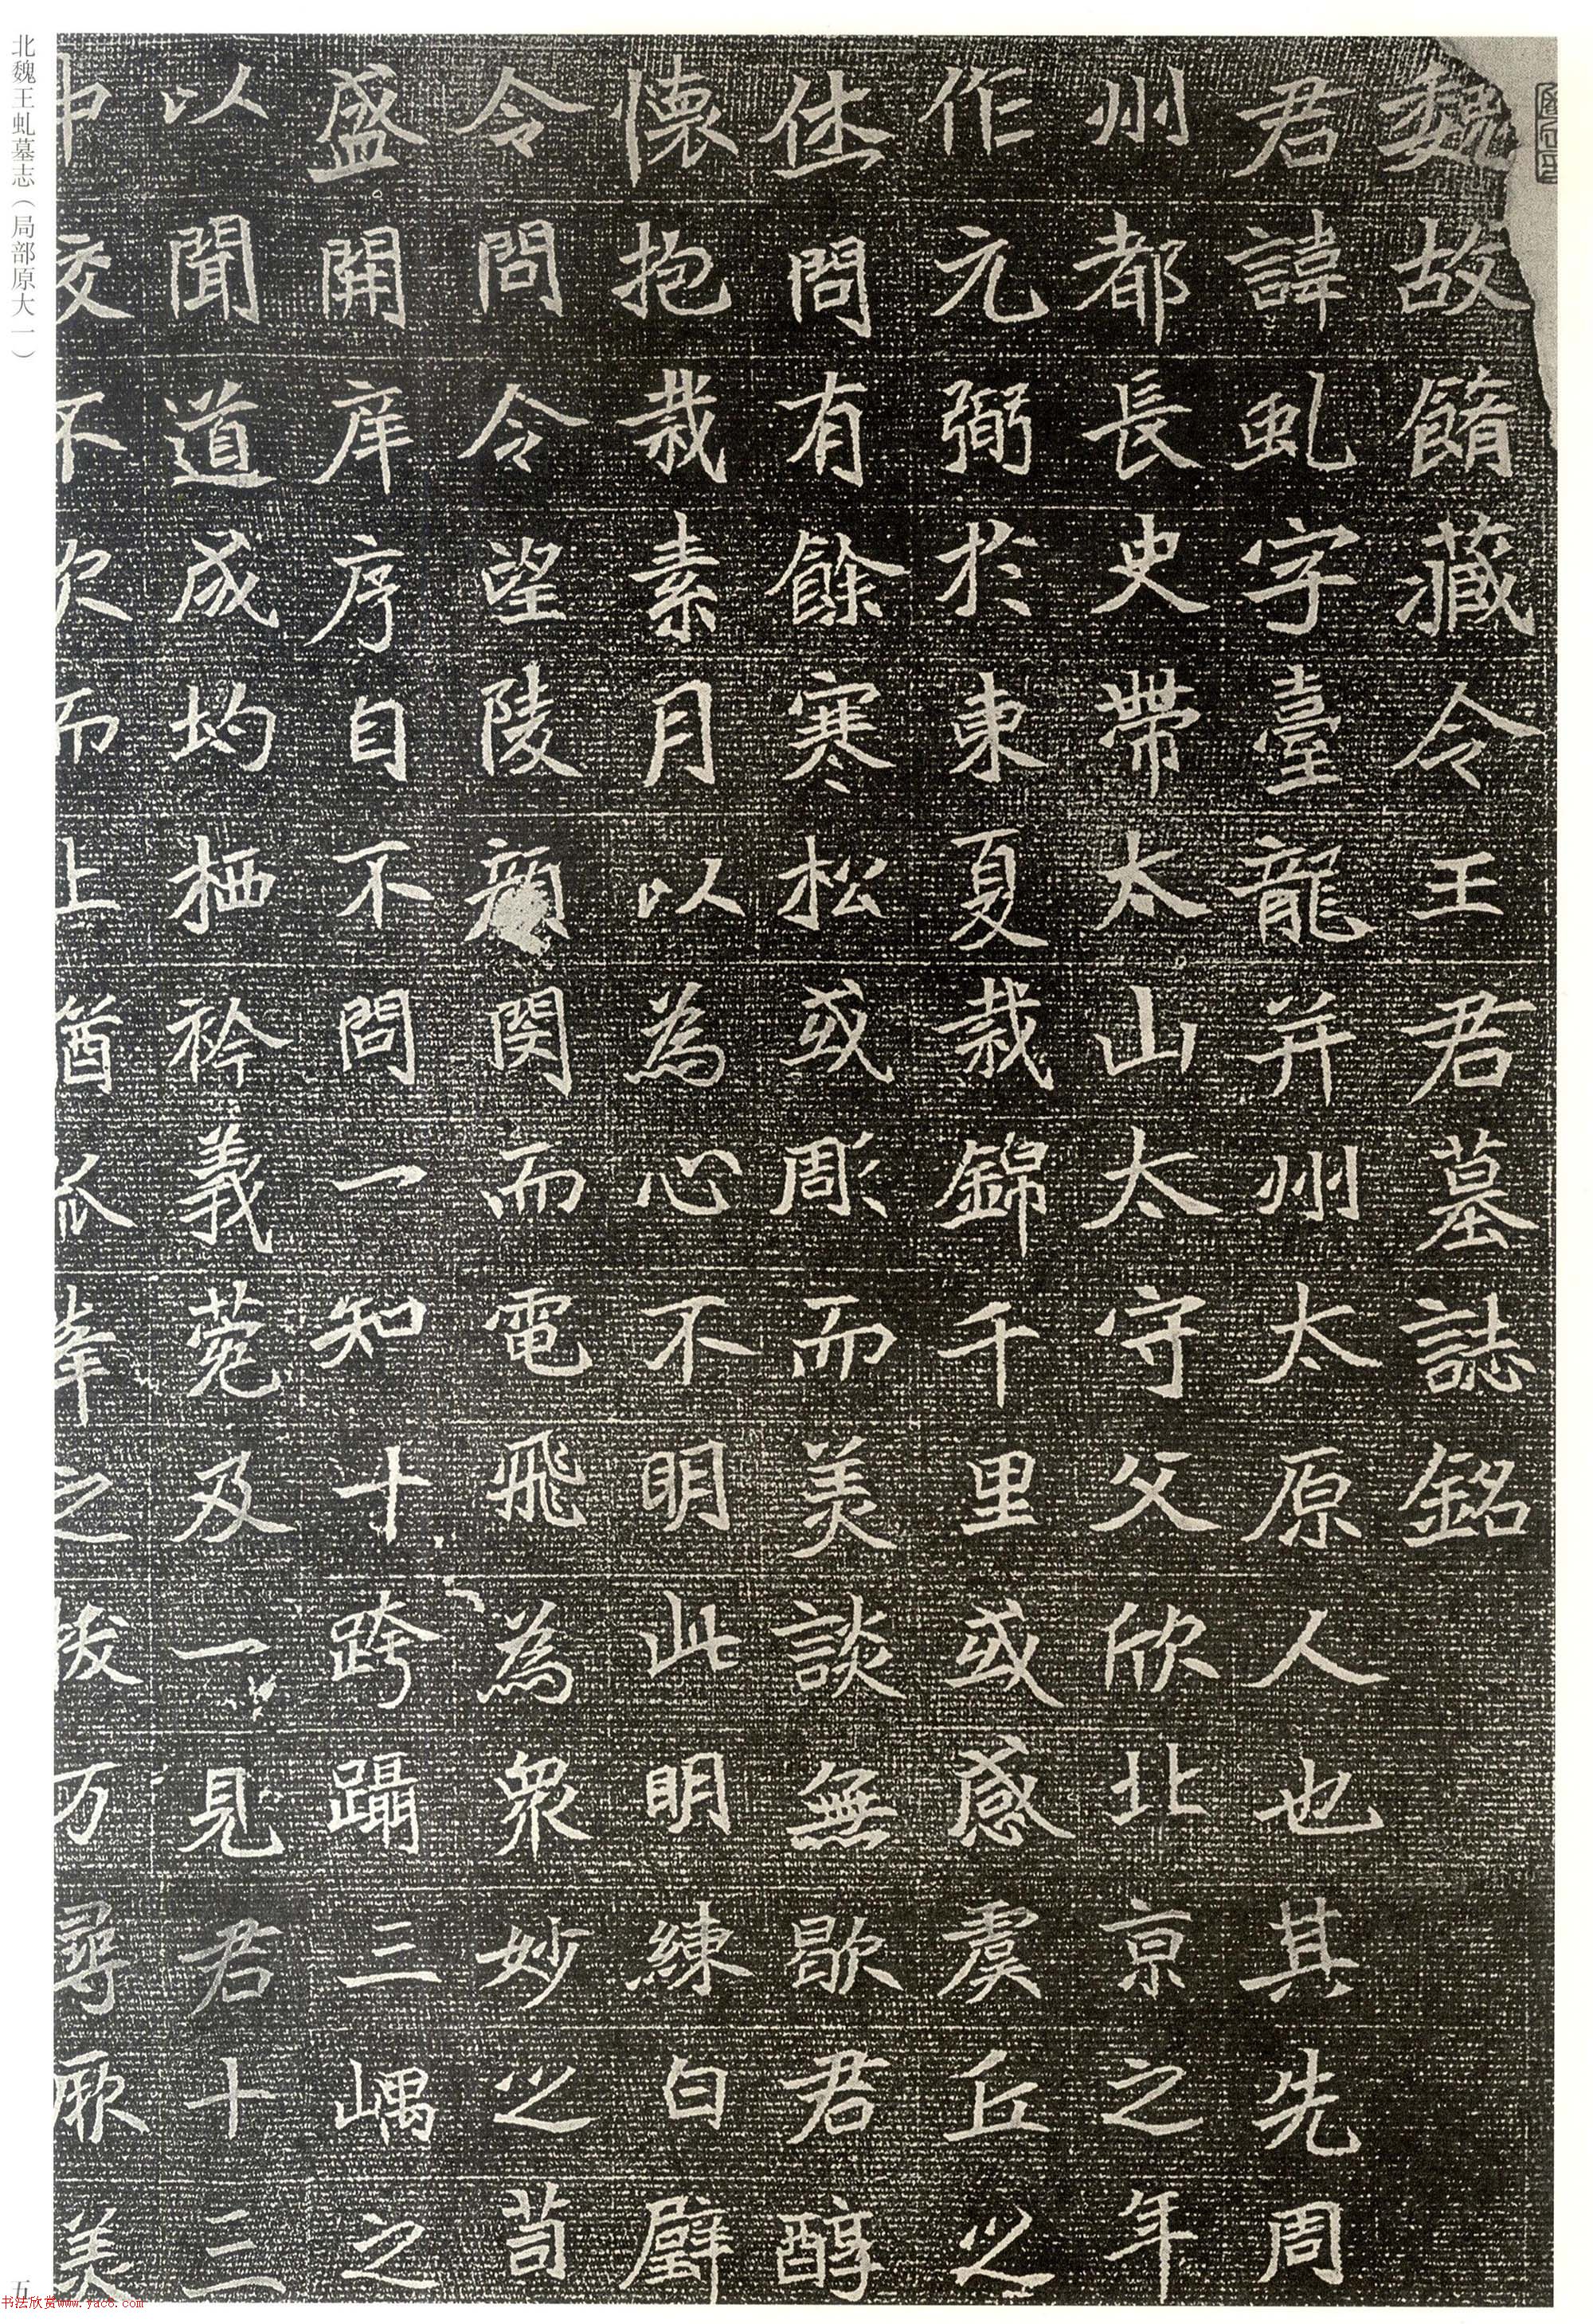 魏故脩藏令王君墓誌銘
君諱虬字臺龍并州太原人也其先周
州都長史帶太山太守父欣北京之年
作元弼於東夏栽錦千里或感虞丘之
休問有餘寒松或彫而美談無歇君醇
懷抱栽素月以為心不明此明練白壁
令問令望陵顏閔而電飛為衆妙之苟
盛開庠序自不問一知十跨躡三嵎之
以聞道成均栖衿義菀及一見君十三
中交不欠而上酋派峯之拔万尋厥美
北魏王虬墓志（局部原大一）
五
书法欣赏www.yac8.com